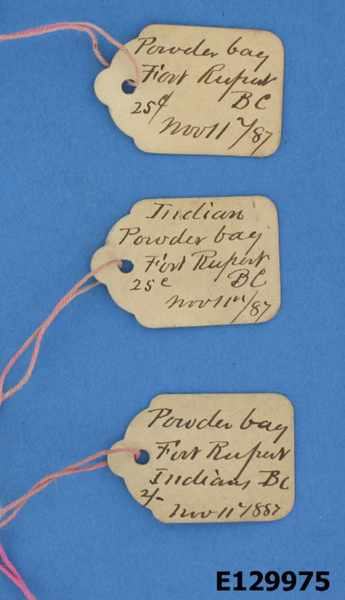 Powder bag
Fort Rupert
25¢ BC
Nov 11th/87
Indian
Powder bag
Fort Rupert
25c BC
Nov 11th/87
Powder bag
Fort Rupert
Indians BC
Nov 11th/887
E129975